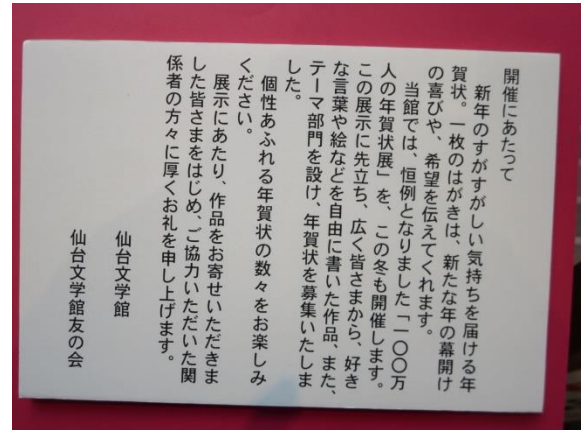 開催にあたって
新年のすがすがしい気持ちを届ける年
賀状。一枚のはがきは、新たな年の幕開け
の喜びや、希望を伝えてくれます。
当館では、恒例となりました「一〇〇万
人の年賀状展」を、この冬も開催します。
この展示に先立ち、広く皆さまから、好き
な言葉や絵などを自由に書いた作品、また、
テーマ部門を設け、年賀状を募集いたしま
した。
個性あふれる年賀状の数々をお楽しみ
ください。
展示にあたり、作品をお寄せいただきま
した皆さまをはじめ、ご協力いただいた関
係者の方々に厚くお礼を申し上げます。
仙台文学館
仙台文学館友の会